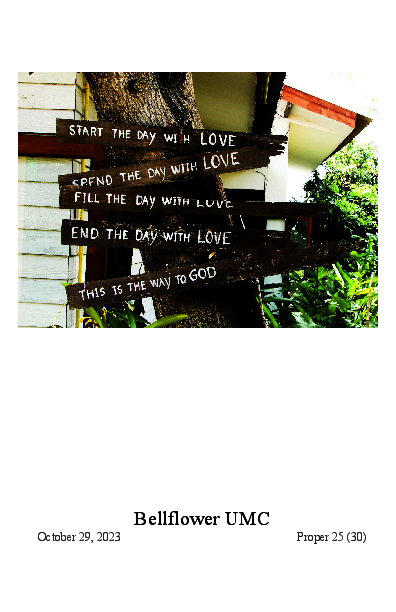 START THE DAY WITH LOVE
SPEND THE DAY WITH LOVE
FILL THE DAY WITH LOVE
END THE DAY WITH LOVE
THIS IS THE WAY TO GOD
Bellflower UMC
October 29, 2023
Proper 25 (30)